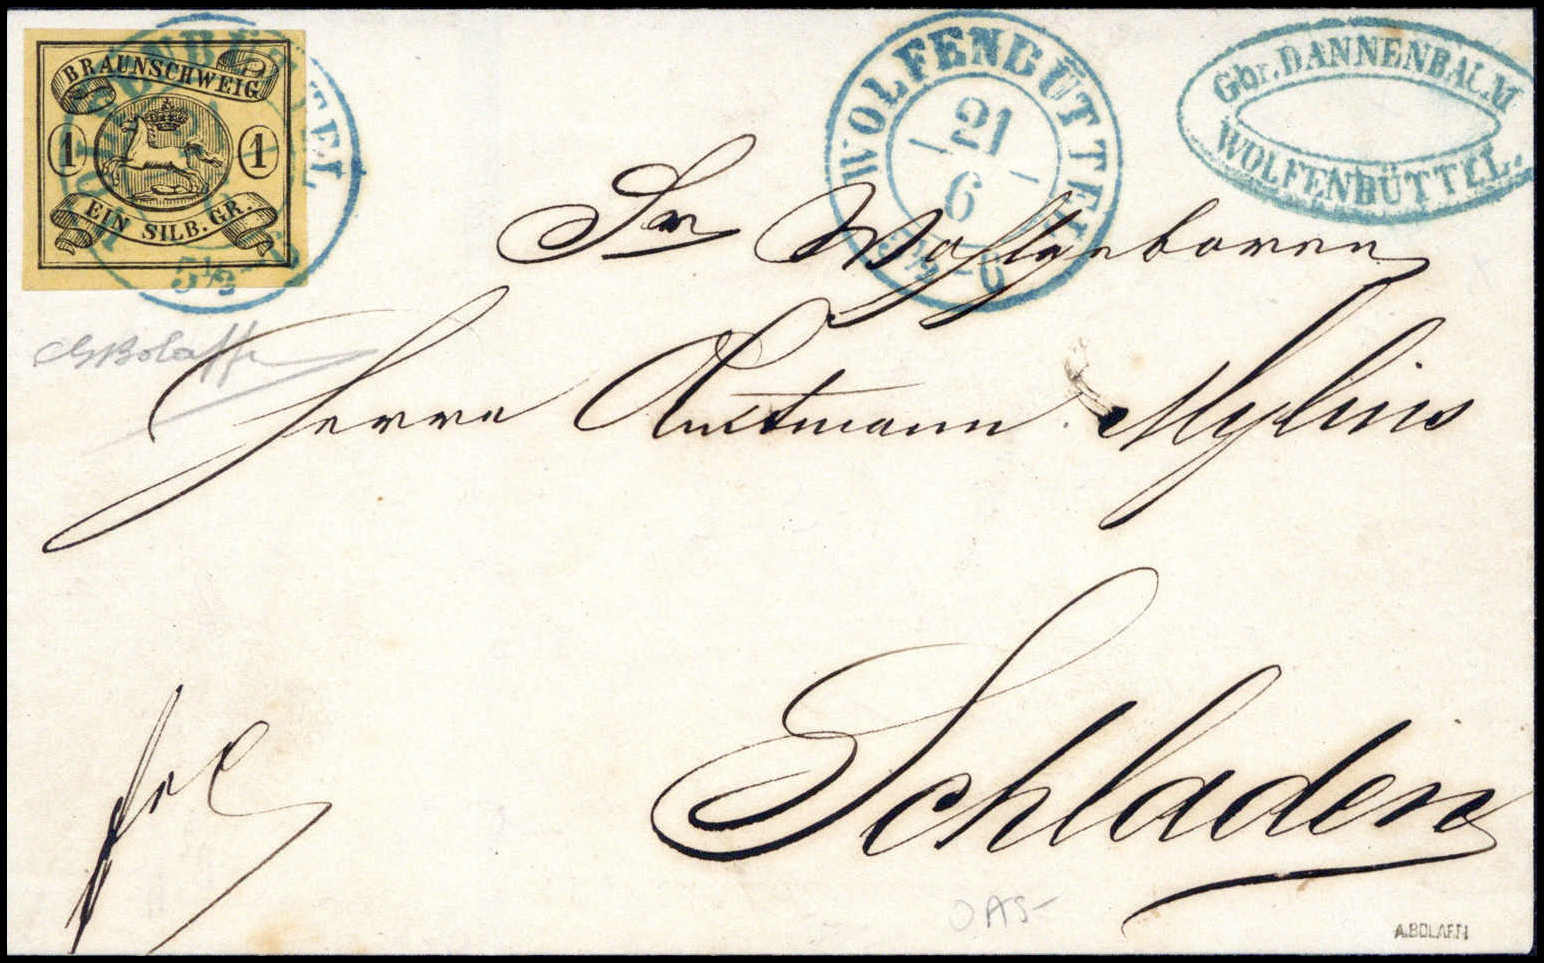 BRAUNSCHWEIG
1 1
EIN SILB. GR.
WOLFENBÜTTEL
21
6
5½-6
Gbr. DANNENBAUM
WOLFENBÜTTEL.
Sr Wohlgeboren
Herrn Amtmann Mylius
Schladen
fr
ABolaffi
A.BOLAFFI